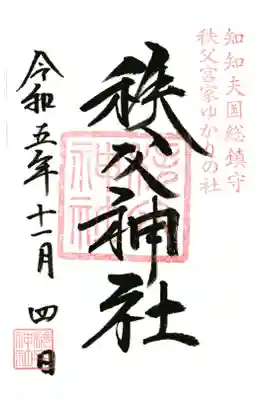 知知夫国総鎮守
秩父宮家ゆかりの社
秩父神社
令和五年十一月四日